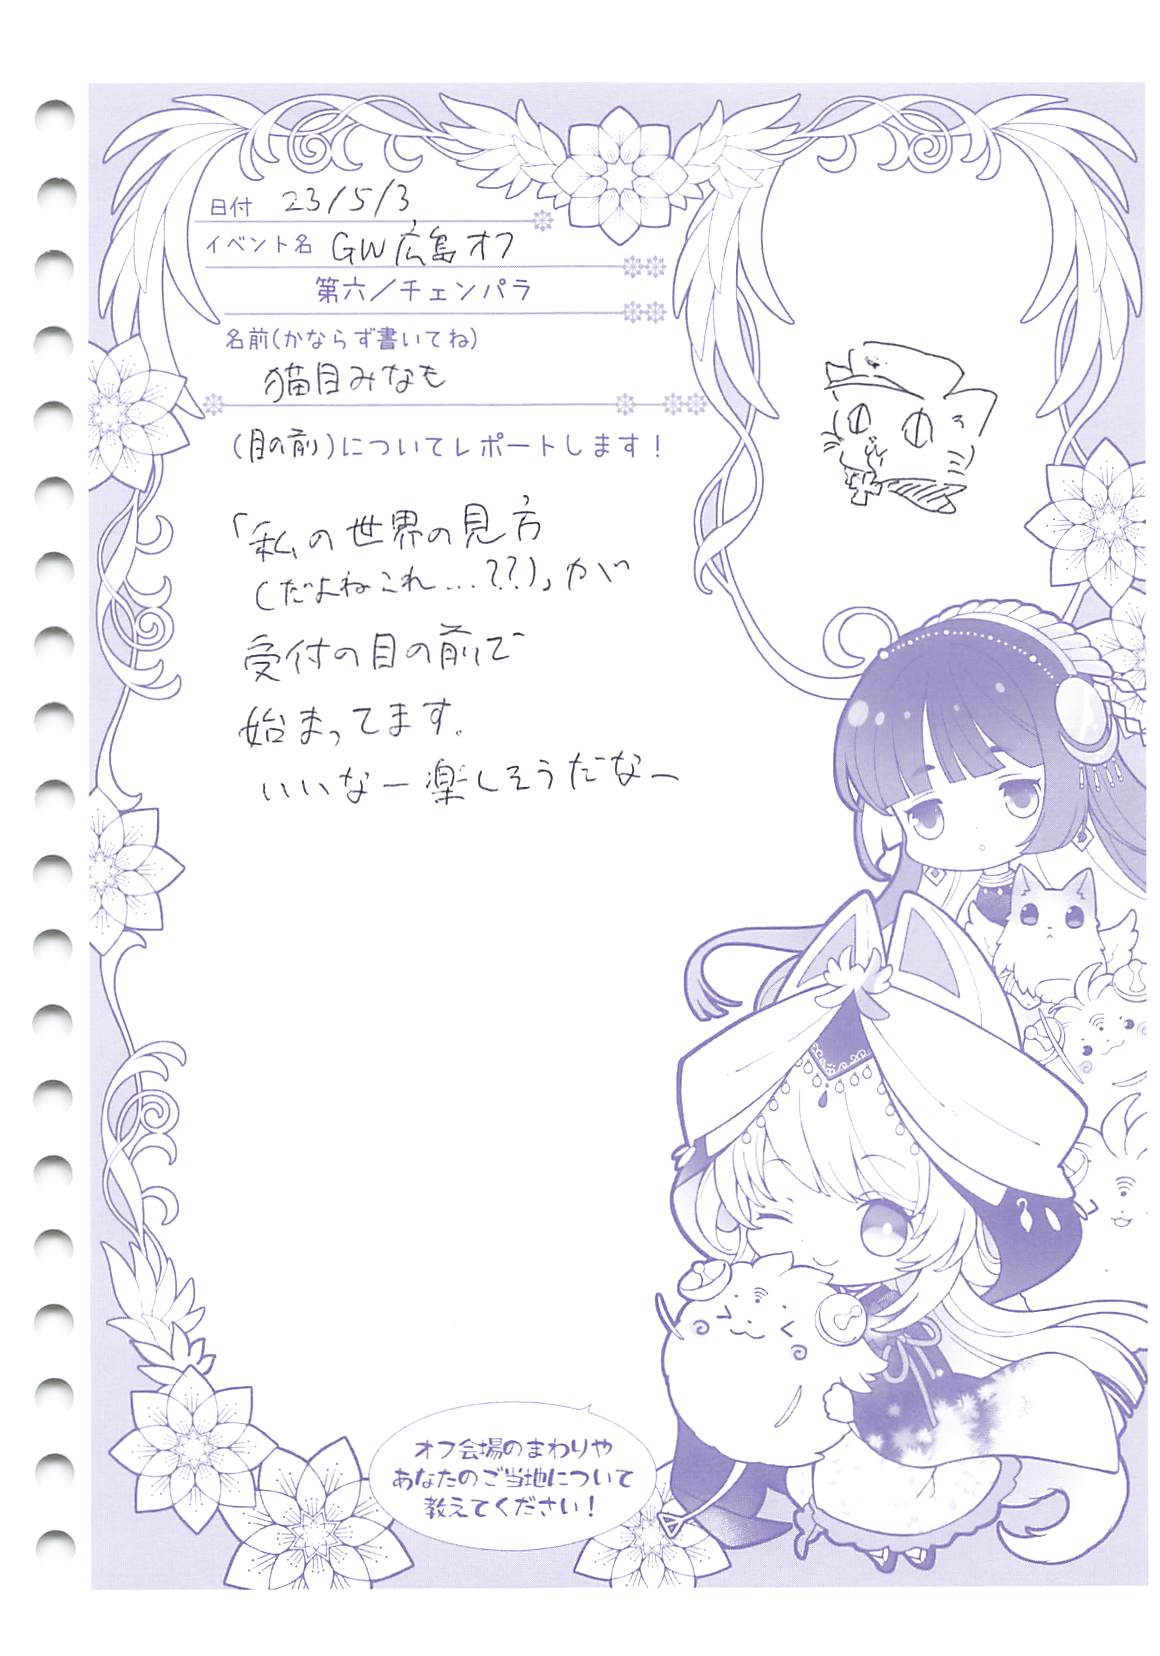 日付 23/5/3
イベント名 GW広島オフ
第六/チェンパラ
名前(かならず書いてね)
猫目みなも
(目の前)についてレポートします!
「私の世界の見方
(だよねこれ...??)」が
受付の目の前で
始まってます。
いいなー楽しそうだなー
オフ会場のまわりや
あなたのご当地について
教えてください!